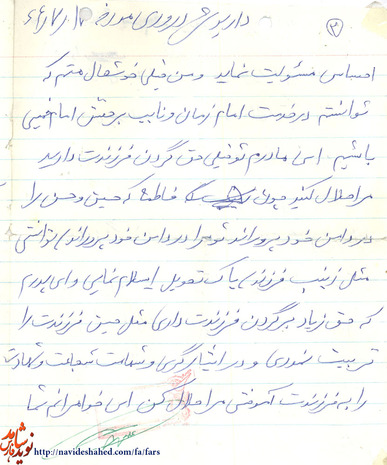 ۳
داریوش درودی مورخه ۶۶/۷/۱۲
احساس مسئولیت نماید و من خیلی خوشحال هستم که
توانستم در خدمت امام زمان و نایب برحقش امام خمینی
باشیم ای مادرم تو خیلی حق گردن فرزندت دارید
مرا حلال کنید چون فاطمه که حسین و حسن را
در دامن خود پروراند تو مرا در دامن خود پروراند توانستی
مثل زینب فرزند پاک تحویل اسلام نمایی و ای پدرم
که حق زیاد برگردن فرزندت داری مثل حسین فرزندت را
تربیت نمودی و درس ایثارگری و شهامت شجاعت و شهادت
را به فرزندت آموختی مرا حلال کن ای خواهرانم شما
نوید شاهد
http://navideshahed.com/fa/fars